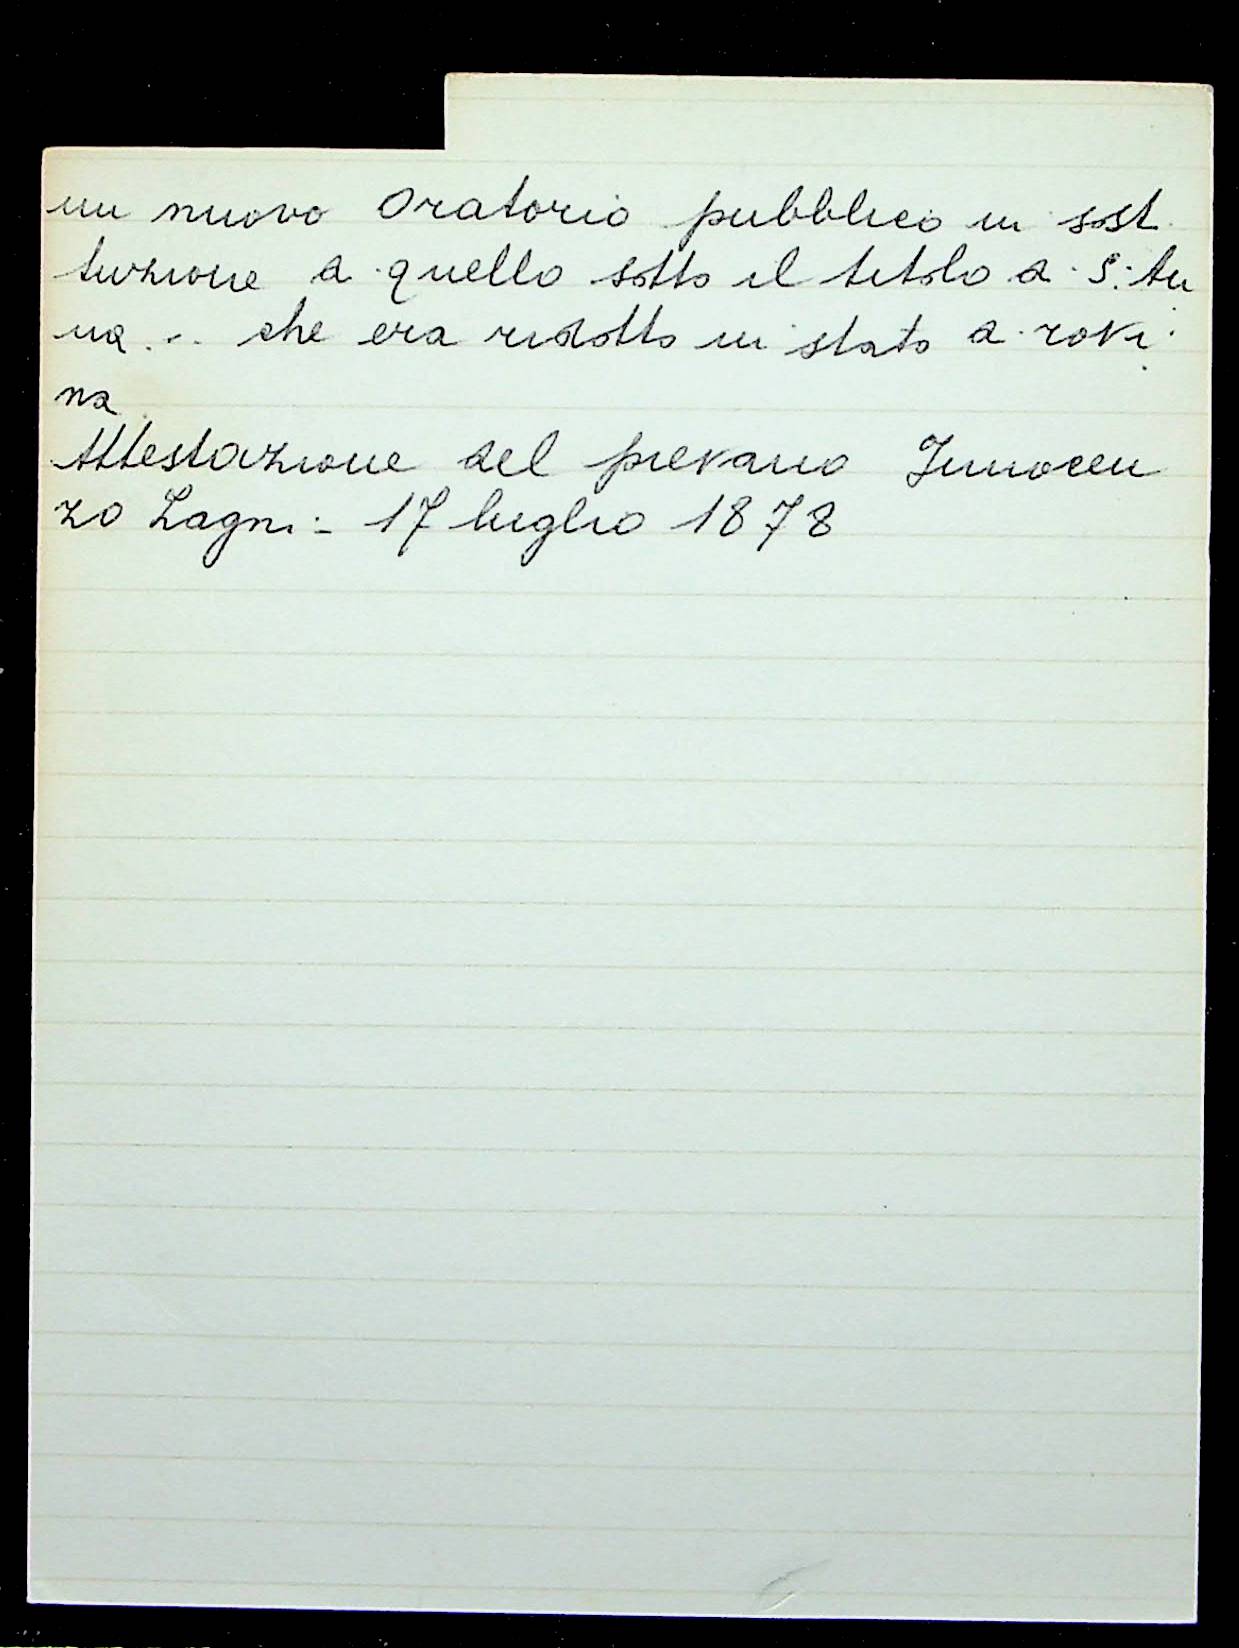 un nuovo Oratorio pubblico in sosti
tuzione a quello sotto il titolo di S. An
na ... che era ridotto in stato di rovi
na
Attestazione del pievano Innocen
zo Lagni - 17 luglio 1878